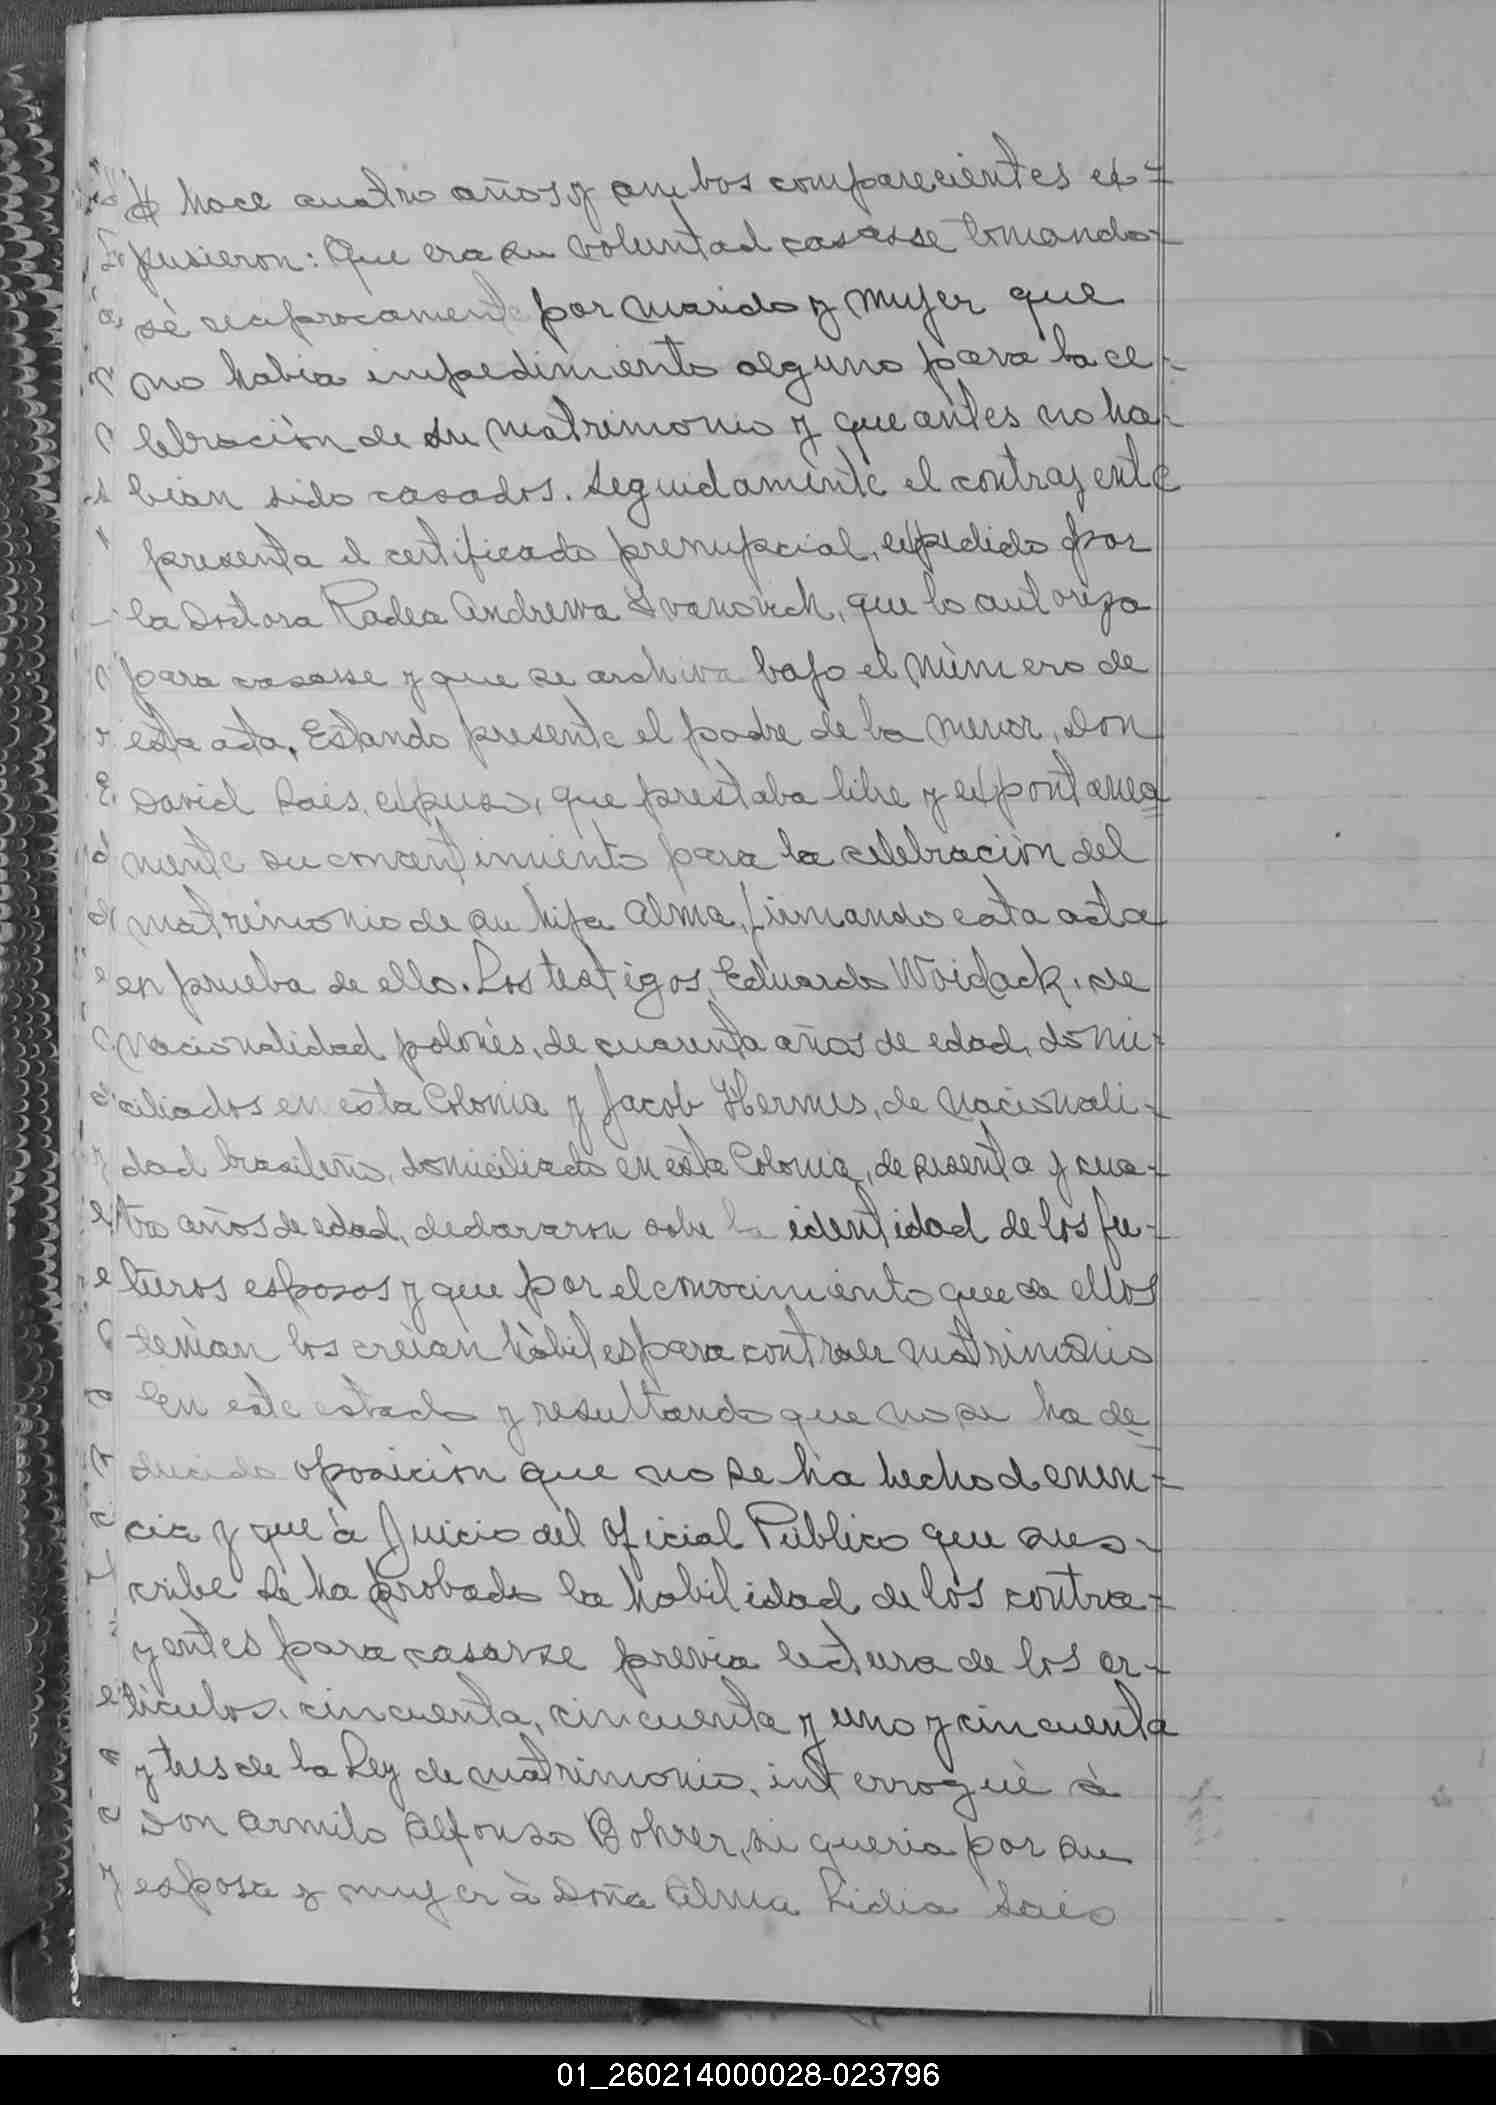 hace cuatro años y ambos comparecientes ex=
pusieron: Que era su voluntad casarse tomando-
sè reciprocamente por marido y mujer que
no habia impedimiento alguno para la ce-
lebraciòn de su matrimonio y que antes no ha-
bian sido casados. Seguidamente el contrayente
presenta el certificado prenupcial, expedido por
la Doctora Radea Andrewa Ivanovich, que lo autoriza
para casarse y que se archiva bajo el nùmero de
esta acta, Estando presente el padre de la menor, Don
David Sais, expuso, que prestaba libre y expontanea=
mente su consentimiento para la celebraciòn del
matrimonio de su hija Alma, firmando esta acta
en prueba de ello. Los testigos, Eduardo Woidack, de
nacionalidad polonès, de cuarenta años de edad, domi-
ciliados en esta Colonia y Jacob Hermes, de nacionali-
dad brasileño, domiciliado en esta Colonia, de sesenta y cua-
tro años de edad, declararon sobre la identidad de los fu-
turos esposos y que por el conocimiento que de ellos
tenian los creian hàbiles para contraer matrimonio
En este estado y resultando que no se ha de=
ducido oposiciòn que no se ha hecho denun-
cia y que à Juicio del Oficial Pùblico que sus-
cribe se ha probado la habilidad de los contra-
yentes para casarse previa lectura de los ar-
ticulos, cincuenta, cincuenta y uno y cincuenta
y tres de la Ley de matrimonio, interroguè à
Don Armilo Alfonso Bohrer, si queria por su
esposa y mujer à Doña Alma Lidia Sais
01_260214000028-023796